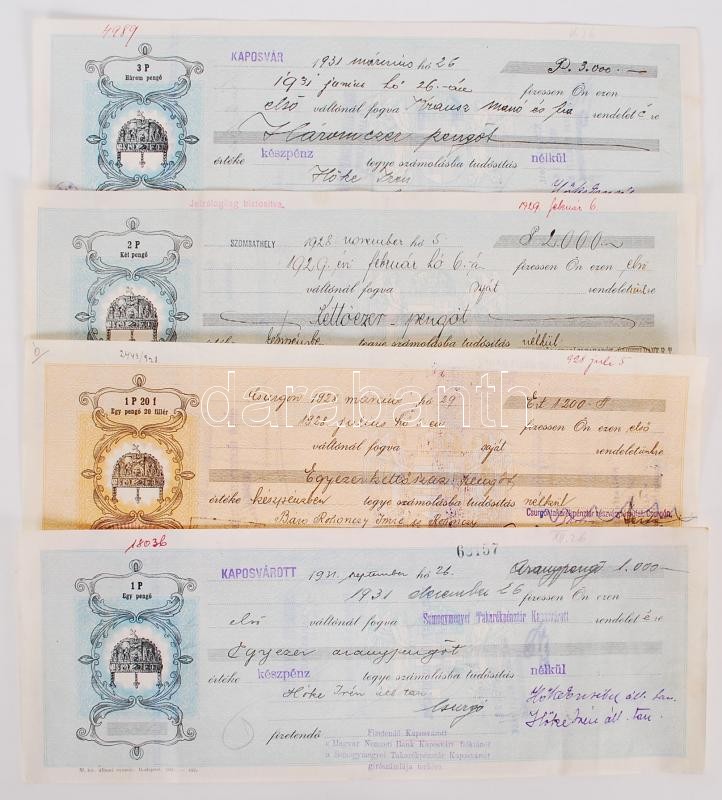 4989
3 P
Három pengő
KAPOSVÁR 1931 március hó 26 P. 3.000.—
1931 junius hó 26-án fizessen Ön ezen
első váltónál fogva Krausz Manó és fia rendeletére
Háromezer pengőt
értéke készpénz tegye számolásba tudósítás nélkül
Hőke Irén
Jelzálogilag biztosítva. 1929 február 6.
2 P
Két pengő
SZOMBATHELY 1928 november hó 5. P 2.000.—
1929. évi február hó 6.-án fizessen Ön ezen első
váltónál fogva saját rendeletünkre
Kettőezer pengőt
tegye számolásba tudósítás nélkül
2443/928 928 juli 5
1 P 20 f
Egy pengő 20 fillér
Csurgón 1928 március hó 29 1200
1928 fizessen Ön ezen első
váltónál fogva saját rendeletünkre
Egyezerkettőszáz pengőt
értéke készpénzben tegye számolásba tudósítás nélkül
darabanth
18036 63157
1 P
Egy pengő
KAPOSVÁROTT 1931. september hó 26. Aranypengő 1.000.—
1931 december 26 fizessen Ön ezen
első váltónál fogva Somogymegyei Takarékpénztár Kaposvárott rendeletére
Egyezer aranypengőt
értéke készpénz tegye számolásba tudósítás nélkül
Hőke Irén áll. tan.
Csurgó
Hőke Irén áll. tan.
fizetendő Fizetendő Kaposvárott
a Magyar Nemzeti Bank Kaposvári fiókjánál
a Somogymegyei Takarékpénztár Kaposvárott
girószámlája terhére.